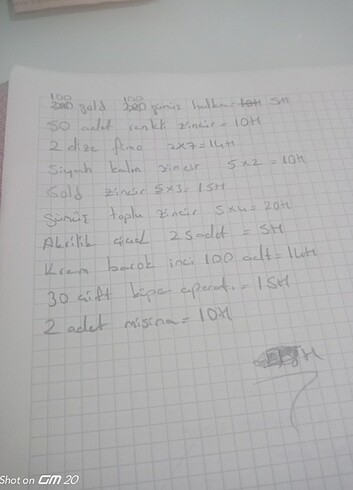 100 gold 100 gümüş halka = 5H
50 adet renkli zincir = 10H
2 dize fimo 2x7 = 14H
Siyah kalın zincir 5x2 = 10H
Gold zincir 5x3 = 15H
Gümüş toplu zincir 5x4 = 20H
Akrilik 25 adet = 5H
Krem barok inci 100 adt = 14H
30 çift küpe aparatı = 15H
2 adet misina = 10H
Shot on GM 20